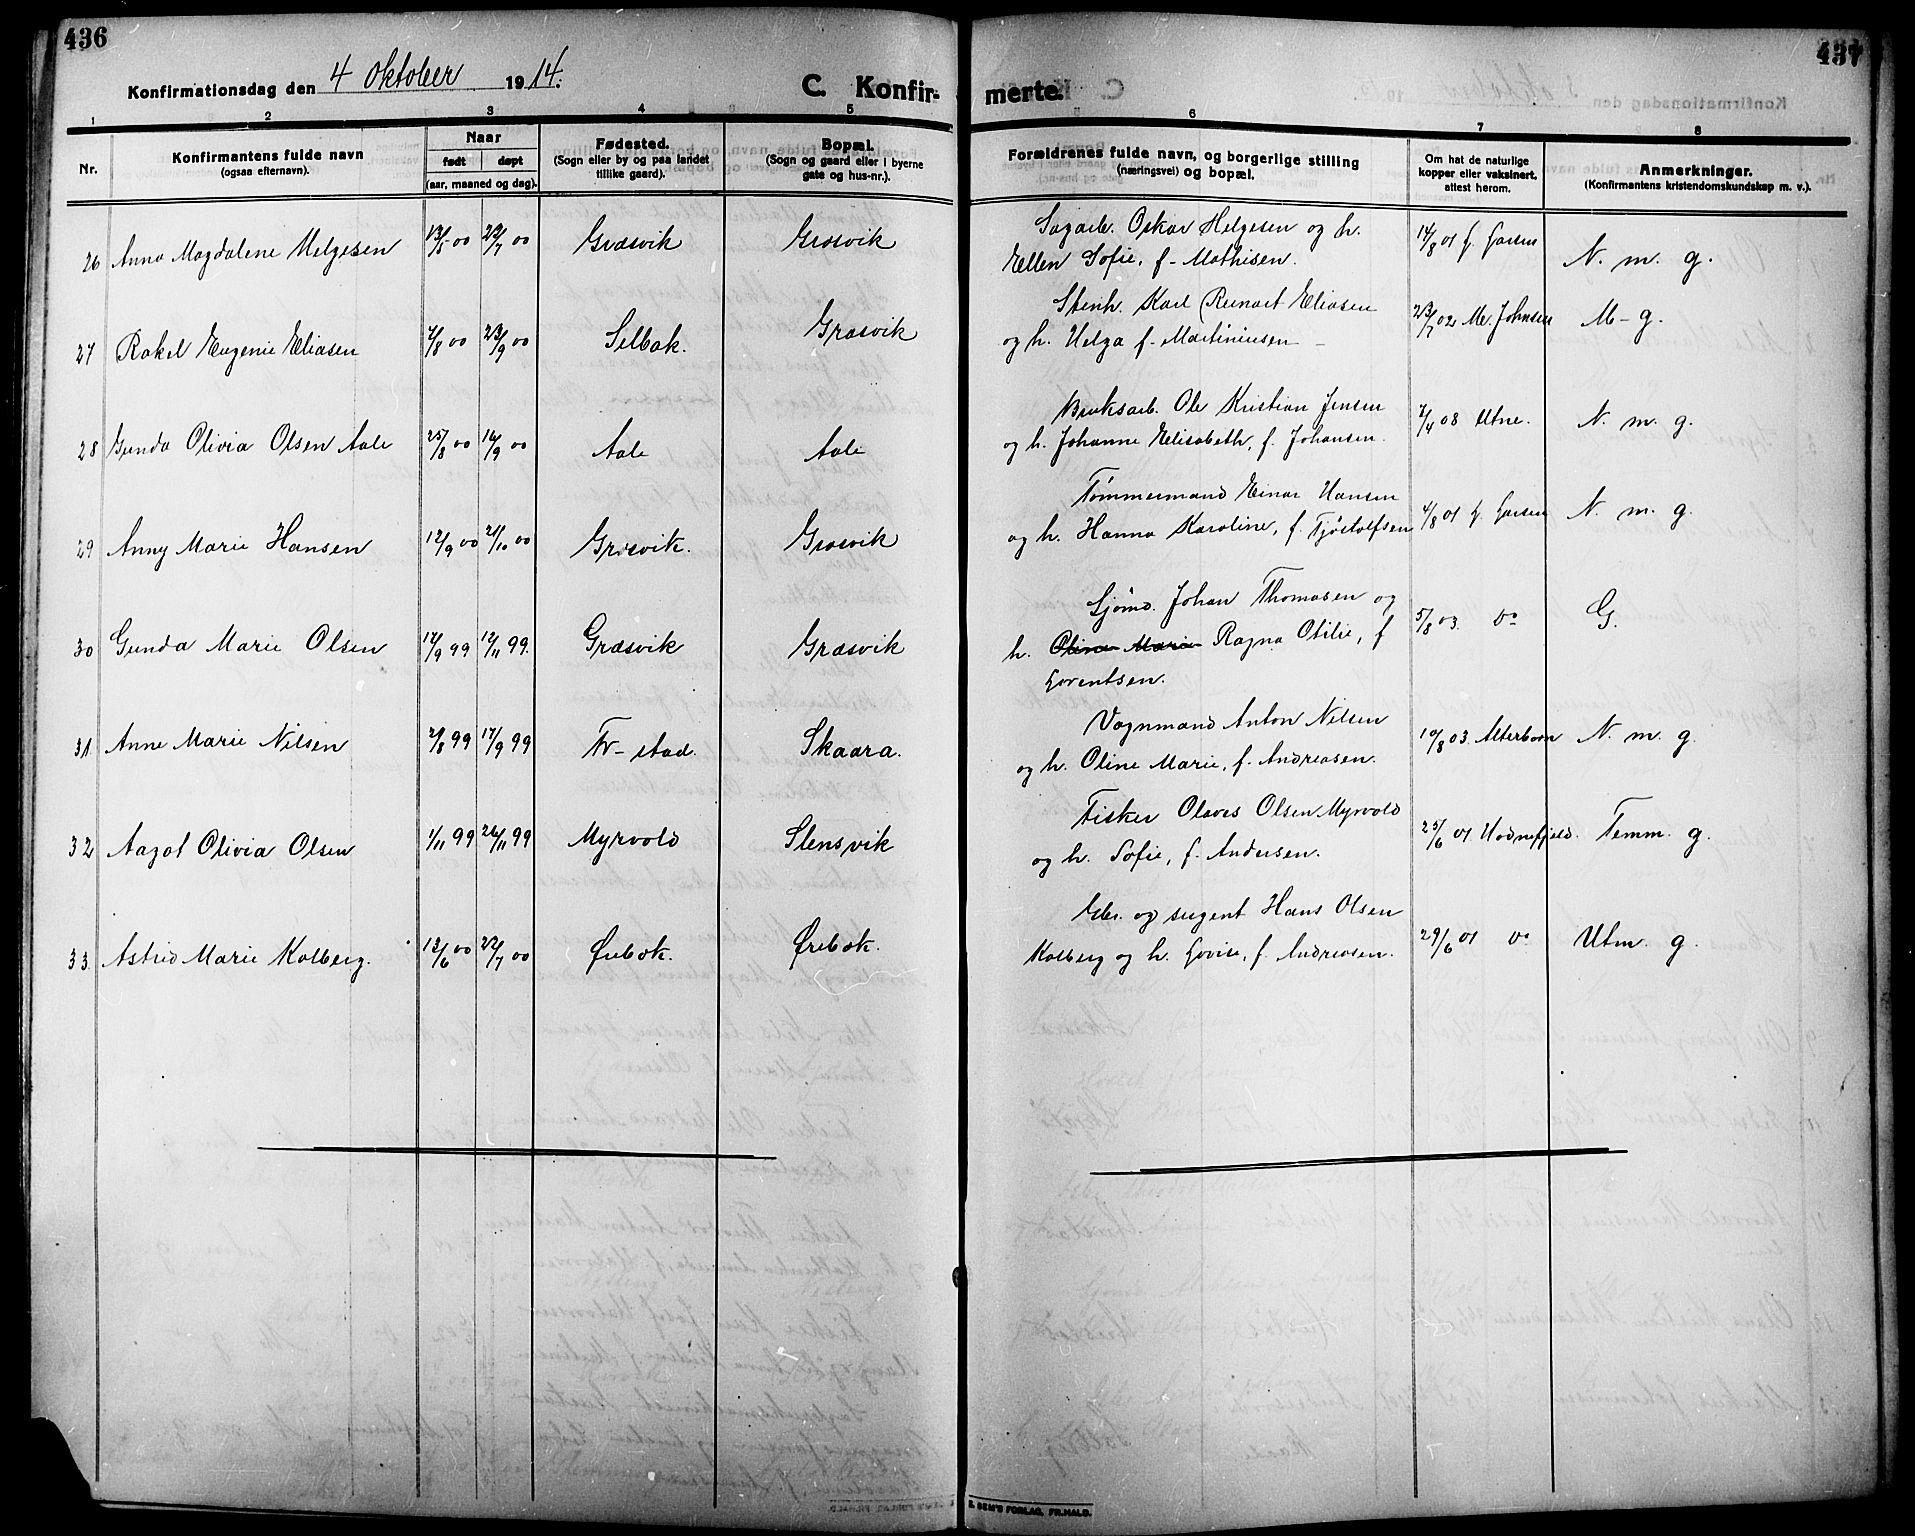 436
437
Konfirmationsdag den 4 Oktober 1914.
C. Konfirmerte.
1 2 3 4 5 6 7 8
Nr.
Konfirmantens fulde navn
(ogsaa efternavn).
Naar
født døpt
(aar, maaned og dag).
Fødested.
(Sogn eller by og paa landet
tillike gaard).
Bopæl.
(Sogn og gaard eller i byerne
gate og hus-nr.).
Forældrenes fulde navn, og borgerlige stilling
(næringsvei) og bopæl.
Om hat de naturlige
kopper eller vaksinert,
attest herom.
Anmerkninger.
(Konfirmantens kristendomskundskap m. v.).
Sagarb. Oskar Helgesen og h.
26 Anna Magdalene Helgesen 13/5 00 22/7 00 Græsvik Græsvik Ellen Sofie, f. Mathisen. 14/8 01 L. Larsen N. m. g.
Stenh. Karl Reinart Eliasen
27 Rakel Eugenie Eliasen 4/8 00 23/9 00 Selbak. Græsvik og h. Helga f. Martiniusen 23/7 02 M. Johnsen M-g.
Bruksarb. Ole Kristian Jensen
28 Gunda Olivia Olsen Aale 25/8 00 16/9 00 Aale Aale og h. Johanne Elisabeth, f. Johansen. 7/4 08 Utne. N. m. g.
Tømmermand Einar Hansen
29 Anny Marie Hansen 12/9 00 21/10 00 Græsvik. Græsvik og h. Hanna Karoline, f. Tjøstolfsen 4/8 01 L. Larsen N. m. g.
Sjømd. Johan Thomasen og
30 Gunda Marie Olsen 17/9 99 12/11 99. Græsvik Græsvik h. Oline Marie Ragna Otilie, f 5/8 03. do G.
Lorentsen.
Vognmand Anton Nilsen
31. Anne Marie Nilsen 2/8 99 17/9 99 Fr-stad. Skaara. og h. Oline Marie, f. Andreasen. 10/8 03. Alterborn N. m. g
Fisker Olaves Olsen Myrvold
32 Aagot Olivia Olsen 1/11 99 26/11 99 Myrvold Slensvik og h. Sofie, f. Andersen. 25/6 01 Hodnefjeld. Temm. g.
Hans Olsen
33. Astrid Marie Kolberg. 13/6 00 22/7 00 Ørebæk. Ørebæk. Kolberg og h. Lovise, f. Andreasen. 29/6 01 do Utm. g.
E. SEM'S FORLAG, FR.HALD.